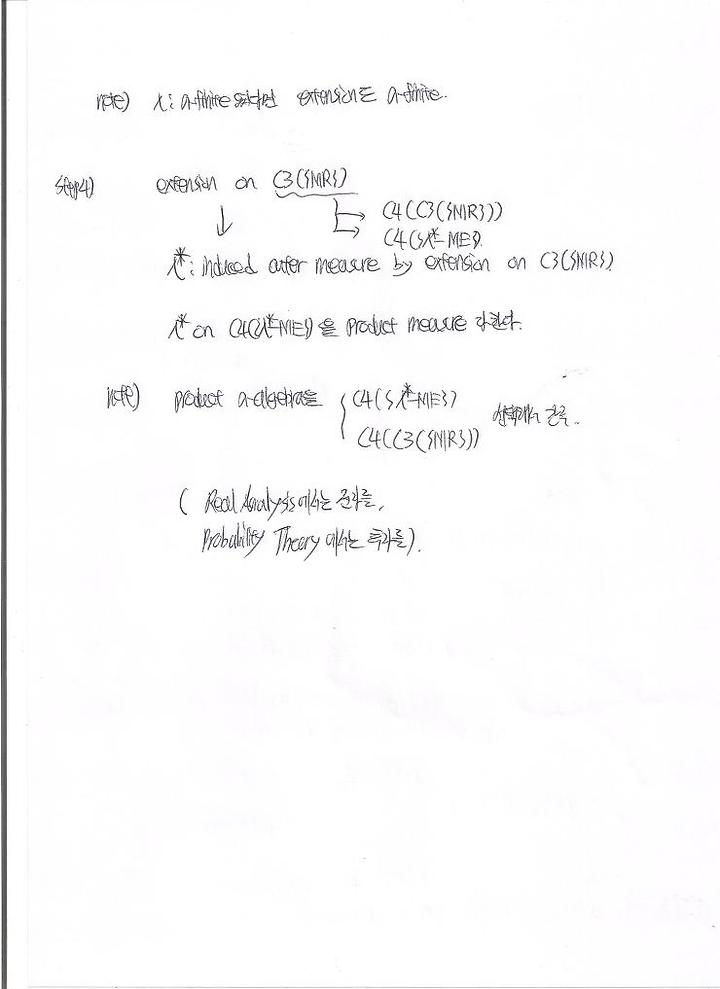 note) λ: σ-finite 하다면 extension도 σ-finite.
step4) extension on C3({MR})
C4(C3({MR}))
C4({λ*-ME})
λ*: induced outer measure by extension on C3({MR})
λ* on C4({λ*-ME})을 product measure 라 한다.
note) product σ-algebra을 C4({λ*-ME})
C4(C3({MR}))
( Real Analysis에서는 전자를,
Probability Theory 에서는 후자를).